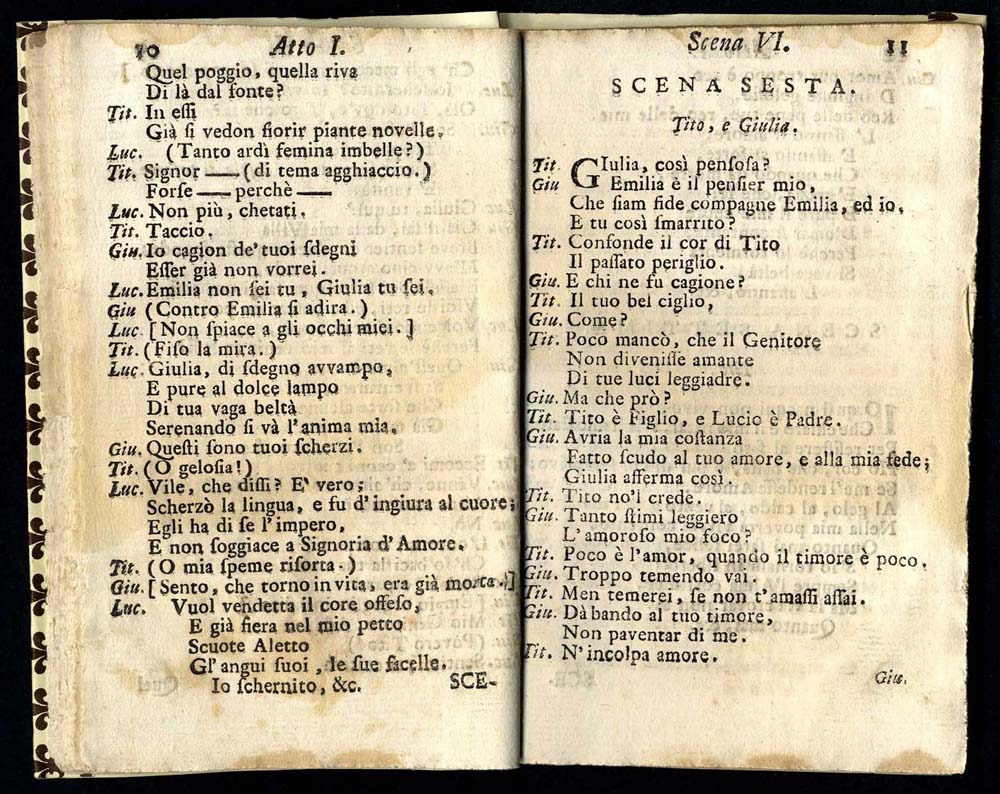 10 Atto I.
Quel poggio, quella riva
Di là dal fonte?
Tit. In eſſi
Già ſi vedon fiorir piante novelle.
Luc. (Tanto ardì femina imbelle?)
Tit. Signor —— (di tema agghiaccio.)
Forſe —— perchè ——
Luc. Non più, chetati.
Tit. Taccio.
Giu. Io cagion de' tuoi ſdegni
Eſſer già non vorrei.
Luc. Emilia non ſei tu, Giulia tu ſei.
Giu (Contro Emilia ſi adira.)
Luc. [Non ſpiace a gli occhi miei.]
Tit. (Fiſo la mira.)
Luc. Giulia, di ſdegno avvampo,
E pure al dolce lampo
Di tua vaga beltà
Serenando ſi và l'anima mia.
Giu. Queſti ſono tuoi ſcherzi.
Tit. (O geloſia!)
Luc. Vile, che diſſi? E' vero;
Scherzò la lingua, e fu d'ingiura al cuore;
Egli ha di ſe l'impero,
E non ſoggiace a Signoria d'Amore.
Tit. (O mia ſpeme riſorta.)
Giu. [Sento, che torno in vita, era già morta.]
Luc. Vuol vendetta il core offeſo,
E già fiera nel mio petto
Scuote Aletto
Gl'angui ſuoi, le ſue facelle.
Io ſchernito, &c. SCE-
Scena VI. 11
SCENA SESTA.
Tito, e Giulia.
Tit. GIulia, così penſoſa?
Giu Emilia è il penſier mio,
Che ſiam fide compagne Emilia, ed io.
E tu così ſmarrito?
Tit. Confonde il cor di Tito
Il paſſato periglio.
Giu. E chi ne fu cagione?
Tit. Il tuo bel ciglio,
Giu. Come?
Tit. Poco mancò, che il Genitore
Non diveniſſe amante
Di tue luci leggiadre.
Giu. Ma che prò?
Tit. Tito è Figlio, e Lucio è Padre.
Giu. Avria la mia coſtanza
Fatto ſcudo al tuo amore, e alla mia fede;
Giulia afferma così.
Tit. Tito no'l crede.
Giu. Tanto ſtimi leggiero
L'amoroſo mio foco?
Tit. Poco è l'amor, quando il timore è poco.
Giu. Troppo temendo vai.
Tit. Men temerei, ſe non t'amaſſi aſſai.
Giu. Dà bando al tuo timore,
Non paventar di me.
Tit. N'incolpa amore.
Giu.